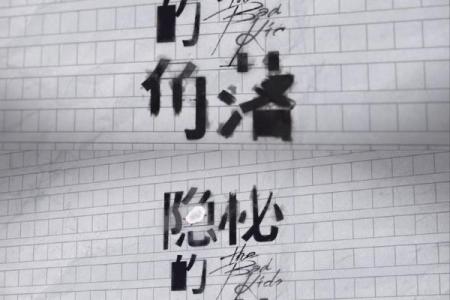 的
Bad
Kids
角落
隐秘
的
the
Bad
Kids